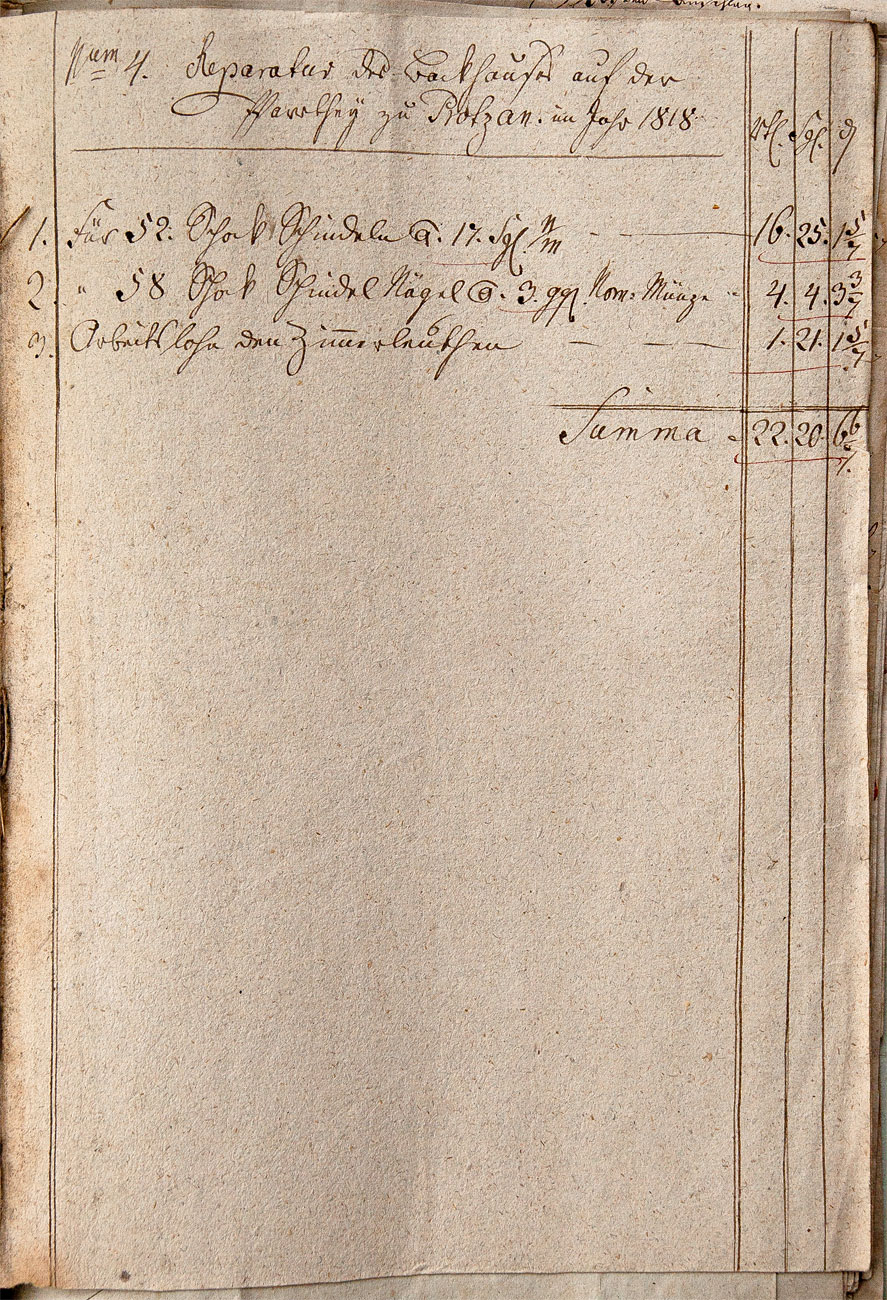 Num 4. Reparatur des Backhauses auf der
Pfarrthey zu Protzan. im Jahr 1818.
rtl. Sgl. d
1. Für 52. Schok Schindeln a. 17. Sgl. n/m — 16. 25. 1 5/7
2. " 58 Schok Schindel Nägel a. 3. ggl. Nom: Münze - 4. 4. 3 3/7
3. Arbeitslohn den Zimmerleuthen — — — 1. 21. 1 5/7
Summa - 22. 20. 6 6/7.